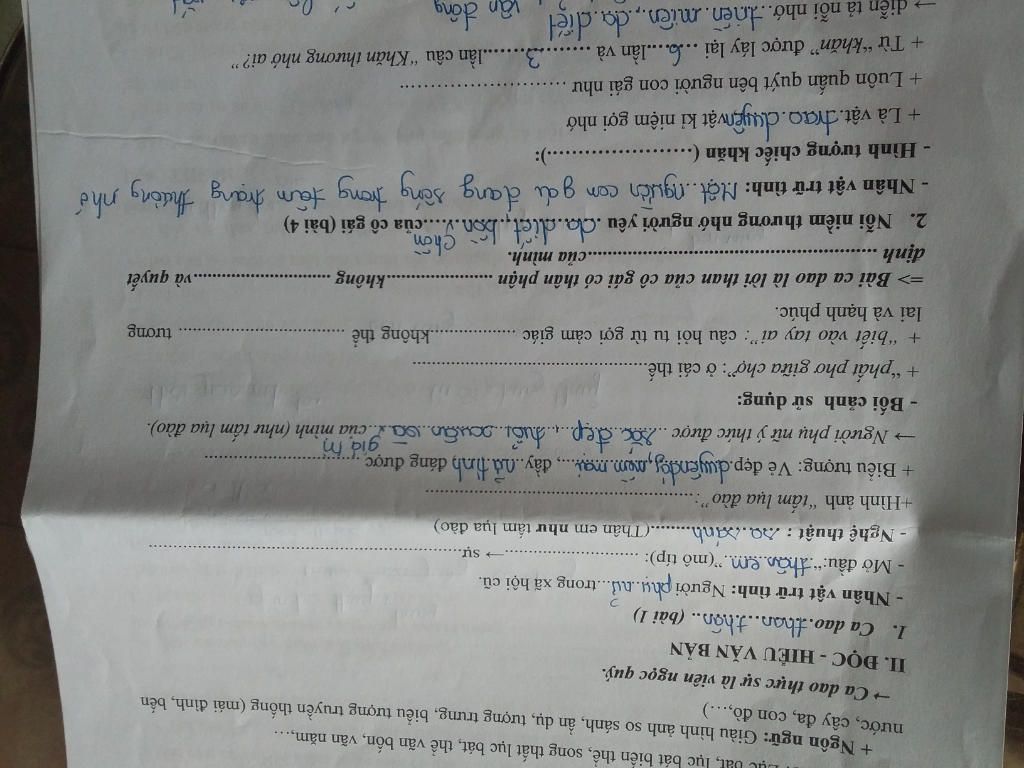 lục bát, lục bát biến thể, song thất lục bát, thể vãn bốn, vãn năm,…
+ Ngôn ngữ: Giàu hình ảnh so sánh, ẩn dụ, tượng trưng, biểu tượng truyền thống (mái đình, bến
nước, cây đa, con đò,…)
→ Ca dao thực sự là viên ngọc quý.
II. ĐỌC - HIỂU VĂN BẢN
1. Ca dao than thân (bài 1)
- Nhân vật trữ tình: Người phụ nữ trong xã hội cũ.
- Mở đầu: "thân em" (mô típ): .................→ sự..................
- Nghệ thuật : so sánh (Thân em như tấm lụa đào)
+Hình ảnh "tấm lụa đào":..................
+ Biểu tượng: Vẻ đẹp duyên dáng, mềm mại, đầy nữ tính đáng được ..................
→ Người phụ nữ ý thức được sắc đẹp, tuổi xuân và giá trị của mình (như tấm lụa đào).
- Bối cảnh sử dụng:
+ "phất phơ giữa chợ": ở cái thế..................
+ "biết vào tay ai": câu hỏi tu từ gợi cảm giác .................không thể .................. tương
lai và hạnh phúc.
=> Bài ca dao là lời than của cô gái có thân phận ..................không ..................và quyết
định ..................của mình.
2. Nỗi niềm thương nhớ người yêu da diết, bồn chồn của cô gái (bài 4)
- Nhân vật trữ tình: Một người con gái đang sống trong tâm trạng thương nhớ
- Hình tượng chiếc khăn (..................):
+ Là vật trao duyên vật kỉ niệm gợi nhớ
+ Luôn quấn quýt bên người con gái như ..................
+ Từ "khăn" được láy lại 6 lần và 3 lần câu "Khăn thương nhớ ai?"
→ diễn tả nỗi nhớ triền miên, da diết